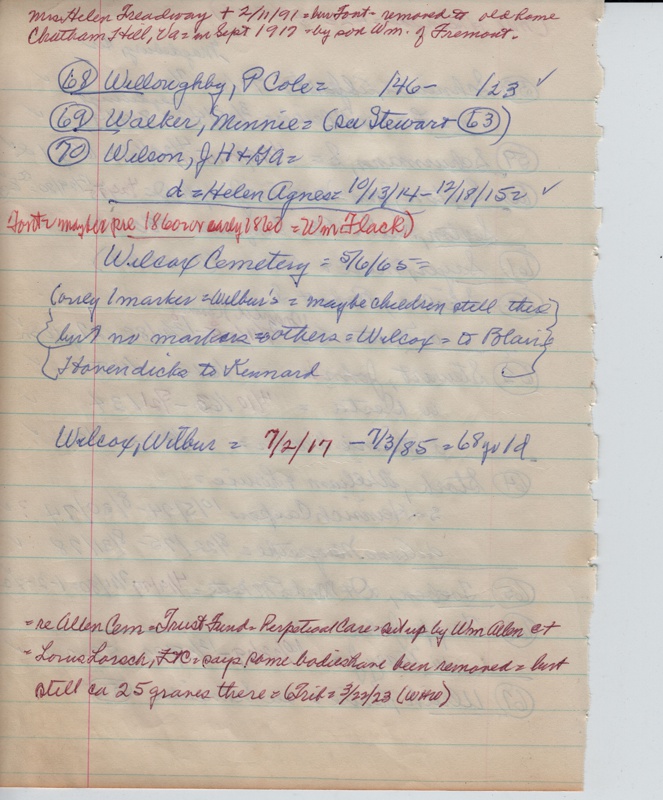 Mrs Helen Treadway + 2/11/91 = bur Font = removed to old home
Chatham Hill, Va = in Sept 1917 = by son Wm. of Fremont.
68 Willoughby, P Cole = 146 - 123 ✓
69 Walker, Minnie = (see Stewart 63)
70 Wilson, J H + =
d = Helen Agnes = 10/13/14 - 12/18/15 = ✓
Font = maybe (pre 1860 or early 1860 = Wm Flack)
Wilcox Cemetery = 5/6/65 =
(only 1 marker = Wilbur's = maybe children still there
but no markers = others = Wilcox = to Blair
Hovendicks to Kennard
Wilcox, Wilbur = 7/2/17 - 7/3/85 = 68 yr old
= re Allen Cem = Trust Fund = Perpetual Care = set up by Wm Allen et
= Lorus Lorsch, = says some bodies have been removed = but
still ca 25 graves there = (Trib = 3/22/23 (WHW)